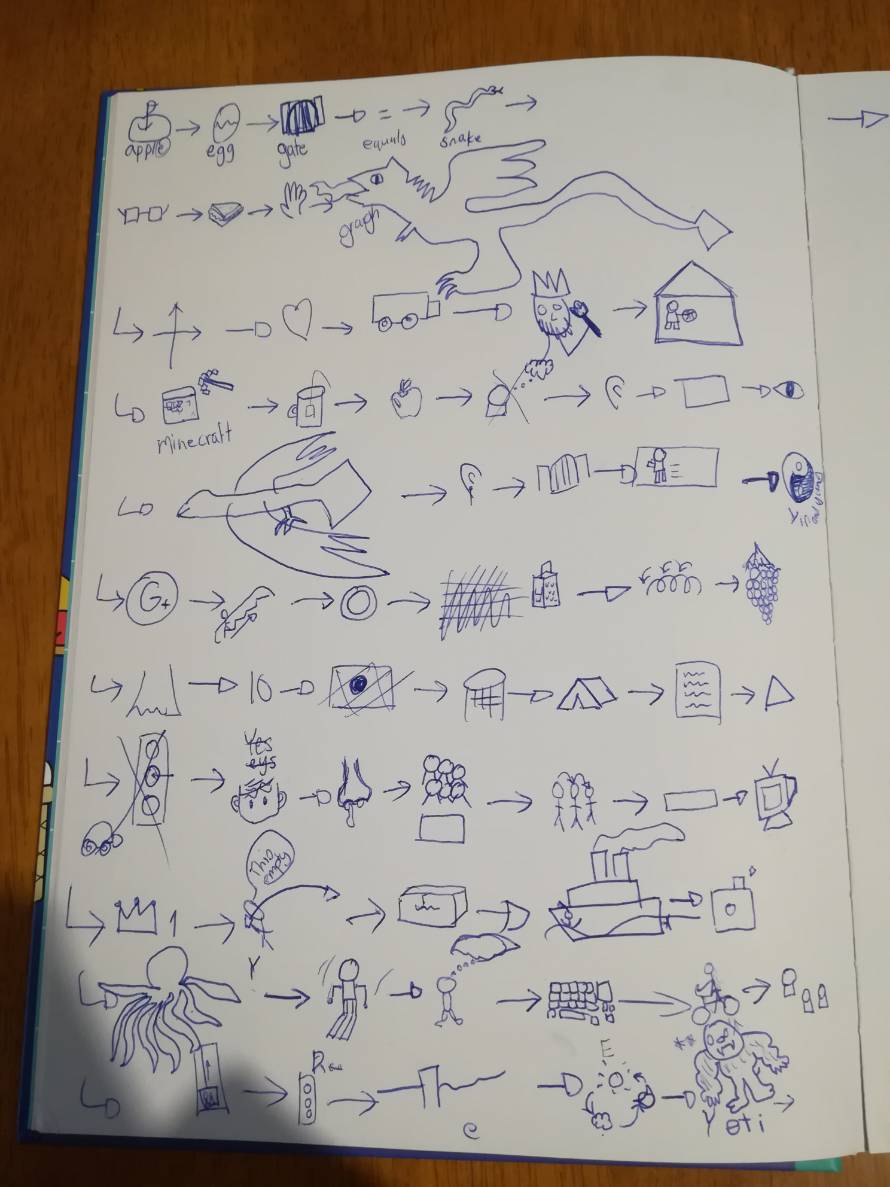 apple egg gate equals snake
=
graph
minecraft
Ying and yang
G+
10
Yes
eyes
This empty
1
Y
R
E
e
Yeti